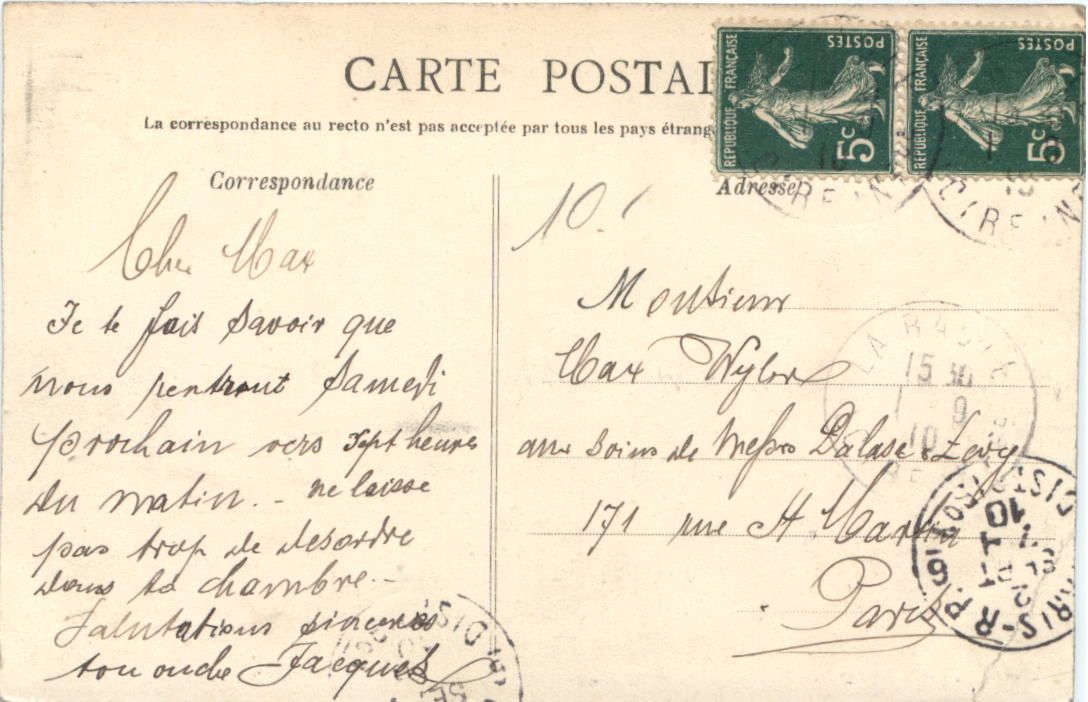 CARTE POSTAL
La correspondance au recto n'est pas acceptée par tous les pays étrang
RÉPUBLIQUE FRANÇAISE
POSTES
5c
RÉPUBLIQUE FRANÇAISE
POSTES
5c
Correspondance
Adresse
10.
Cher Max
Je te fais savoir que
nous rentront Samedi
prochain vers sept heures
du matin. - ne laisse
pas trop de desordre
dans ta chambre. -
Salutations sinceres
ton oncle Jacques
Monsieur
Max Wyler
aux soins de Messrs Dalase & Levy
171 rue St Martin
Paris
LA BAULE
15 30
1 9
10
DISTRIBUTION
PARIS-R.P.
10
1 SEPT
DIS